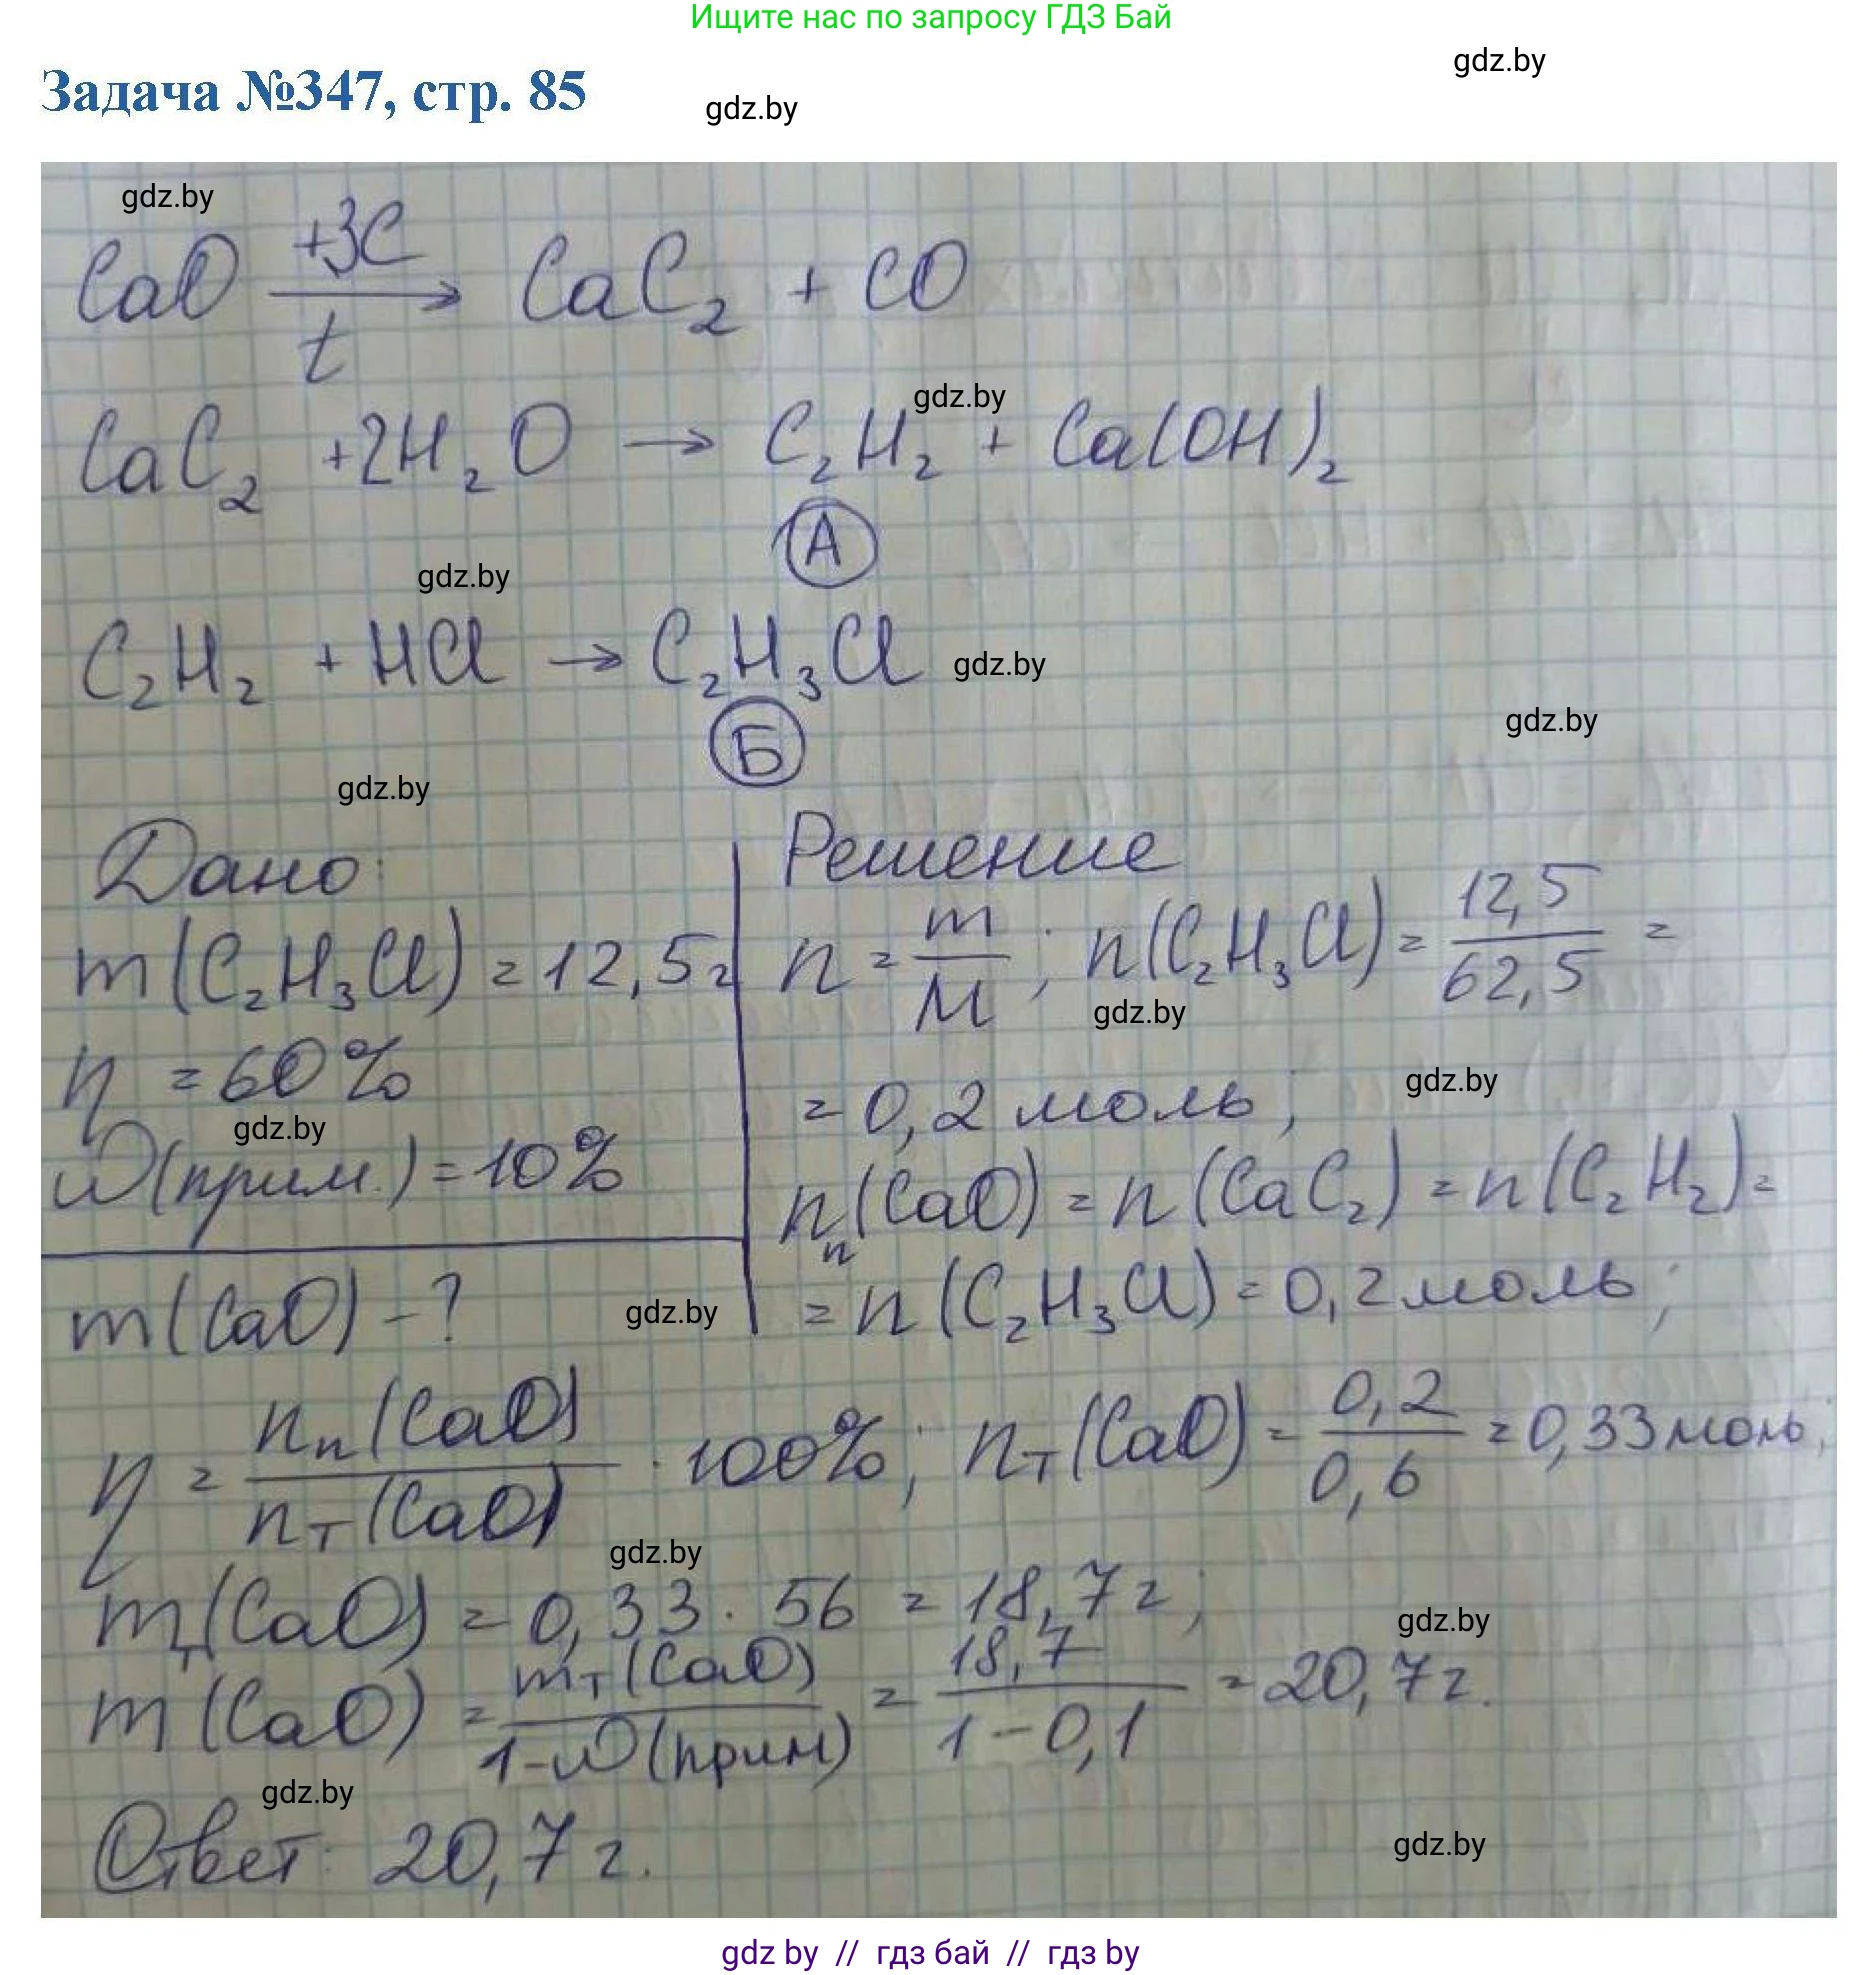 Ищите нас по запросу ГДЗ Бай
gdz.by
Задача №347, стр. 85
gdz.by
gdz.by
CaO +3C/t → CaC₂ + CO
gdz.by
CaC₂ + 2H₂O → C₂H₂ + Ca(OH)₂
А
gdz.by
C₂H₂ + HCl → C₂H₃Cl
gdz.by
Б
gdz.by
gdz.by
Дано:
m(C₂H₃Cl) = 12,5г
η = 60%
gdz.by
ω(прим.) = 10%
m(CaO) - ?
gdz.by
Решение
n = m/M; n(C₂H₃Cl) = 12,5/62,5 =
gdz.by
gdz.by
= 0,2 моль;
nп(CaO) = n(CaC₂) = n(C₂H₂) =
= n(C₂H₃Cl) = 0,2 моль;
η = nп(CaO)/nт(CaO) · 100%; nт(CaO) = 0,2/0,6 = 0,33 моль;
gdz.by
mт(CaO) = 0,33 · 56 = 18,7г;
gdz.by
m(CaO) = mт(CaO)/1-ω(прим) = 18,7/1-0,1 = 20,7г.
gdz.by
Ответ: 20,7г.
gdz.by
gdz by // гдз бай // гдз by